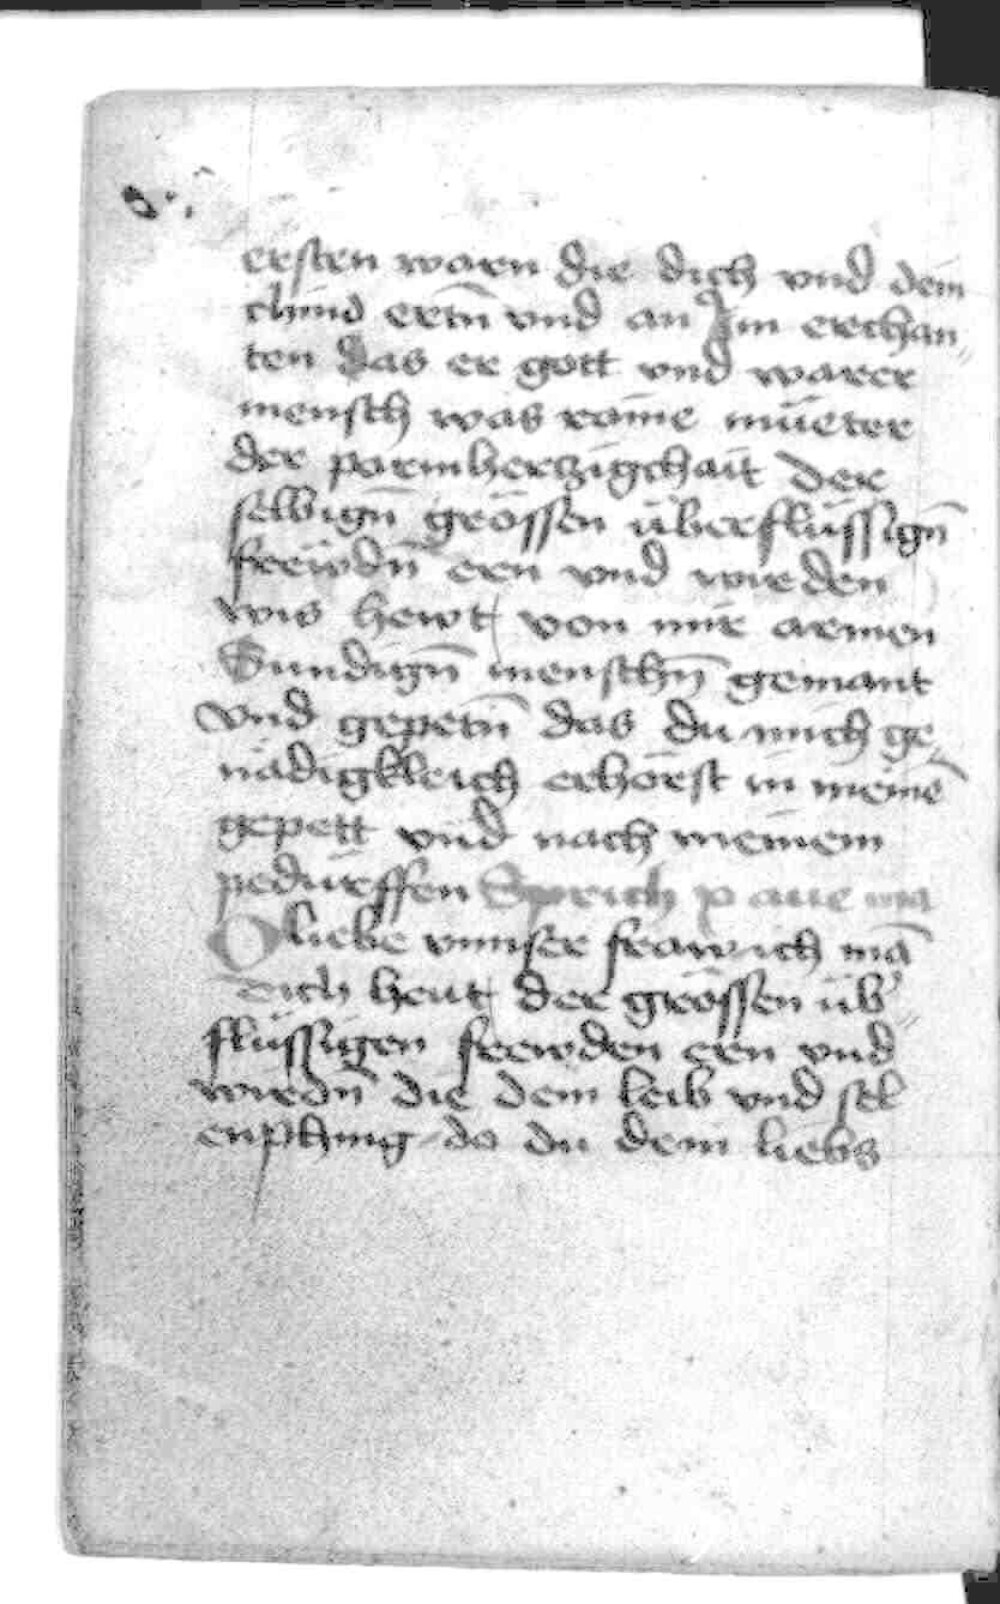 ersten warn die dich vnd dein
chind ertn̄ vnd an Jm erchan„
ten das er gott vnd warer
mensch was raine müeter
der parmherczigchait der
selbign̄ grössen überflüssign̄
frewdn̄ ern vnd wirden
wis hewt von mir armen
Sundign̄ menschn̄ gemant
vnd gepetn̄ das du mich ge„
nädigkleich erhörst in meinē
gepett vnd nach meinem
pedürffen Sprich p aue ma
O liebe vnnser fraw ich mā
dich heut der grössen üb„
flüssigen frewden ern vnd
wirdn̄ die dein leib vnd sel
enphing do du dein liebs